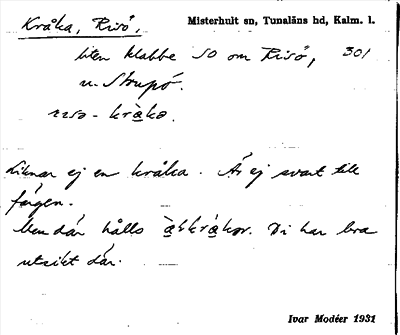 Kråka, Risö,
Misterhult sn, Tunaläns hd, Kalm. l.
liten klabbe SO om Risö, 301
n. Strupö.
riso - kràko.
Liknar ej en kråka. Är ej svart till
färgen.
Men där hålls kråkor. Di har bra
utsikt där.
Ivar Modéer 1931